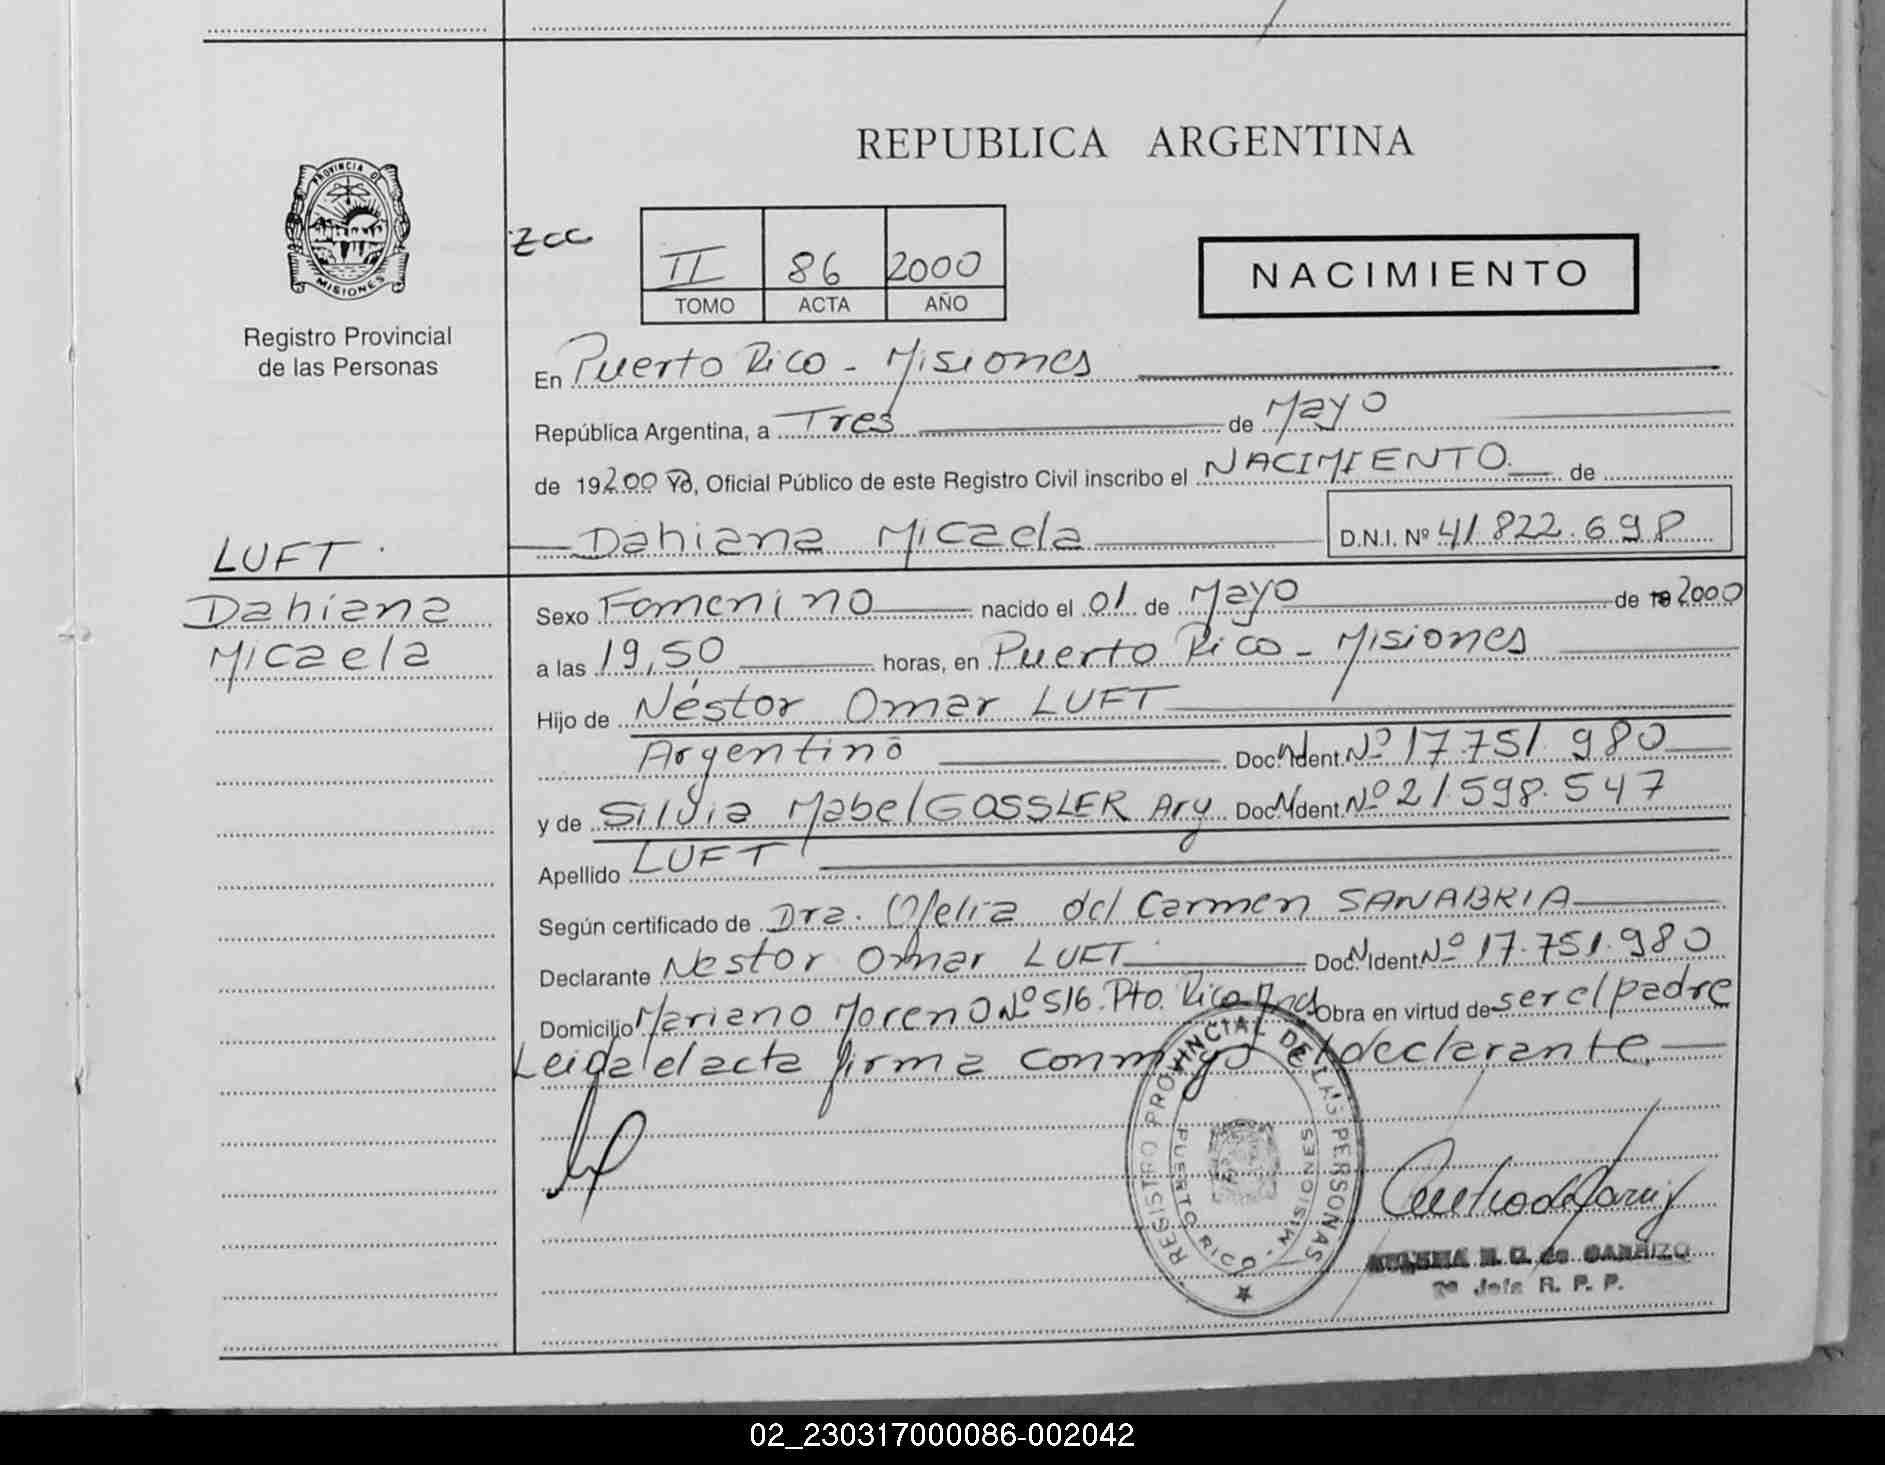 REPUBLICA ARGENTINA
PROVINCIA DE
MISIONES
Registro Provincial
de las Personas
zcc
II 86 2000
TOMO ACTA AÑO
NACIMIENTO
En Puerto Rico - Misiones
República Argentina, a Tres de Mayo
de 19 2000 Yo, Oficial Público de este Registro Civil inscribo el NACIMIENTO de
Dahiana Micaela D.N.I. Nº 41.822.698
LUFT
Dahiana
Micaela
Sexo Femenino nacido el 01 de Mayo de 19 2000
a las 19,50 horas, en Puerto Rico - Misiones
Hijo de Néstor Omar LUFT
Argentino Doc. Ident. Nº 17.751.980
y de Silvia Mabel GOSSLER Arg Doc. Ident. Nº 21.598.547
Apellido LUFT
Según certificado de Dra. Ofelia del Carmen SANABRIA
Declarante Nestor Omar LUFT Doc. Ident. Nº 17.751.980
Domicilio Mariano Moreno Nº 516. Pto. Rico Mnes Obra en virtud de ser el padre
Leida el acta firma conmigo el declarante.
REGISTRO PROVINCIAL DE LAS PERSONAS
PUERTO RICO - MISIONES
de CARRIZO
2º Jefe R. P. P.
02_230317000086-002042